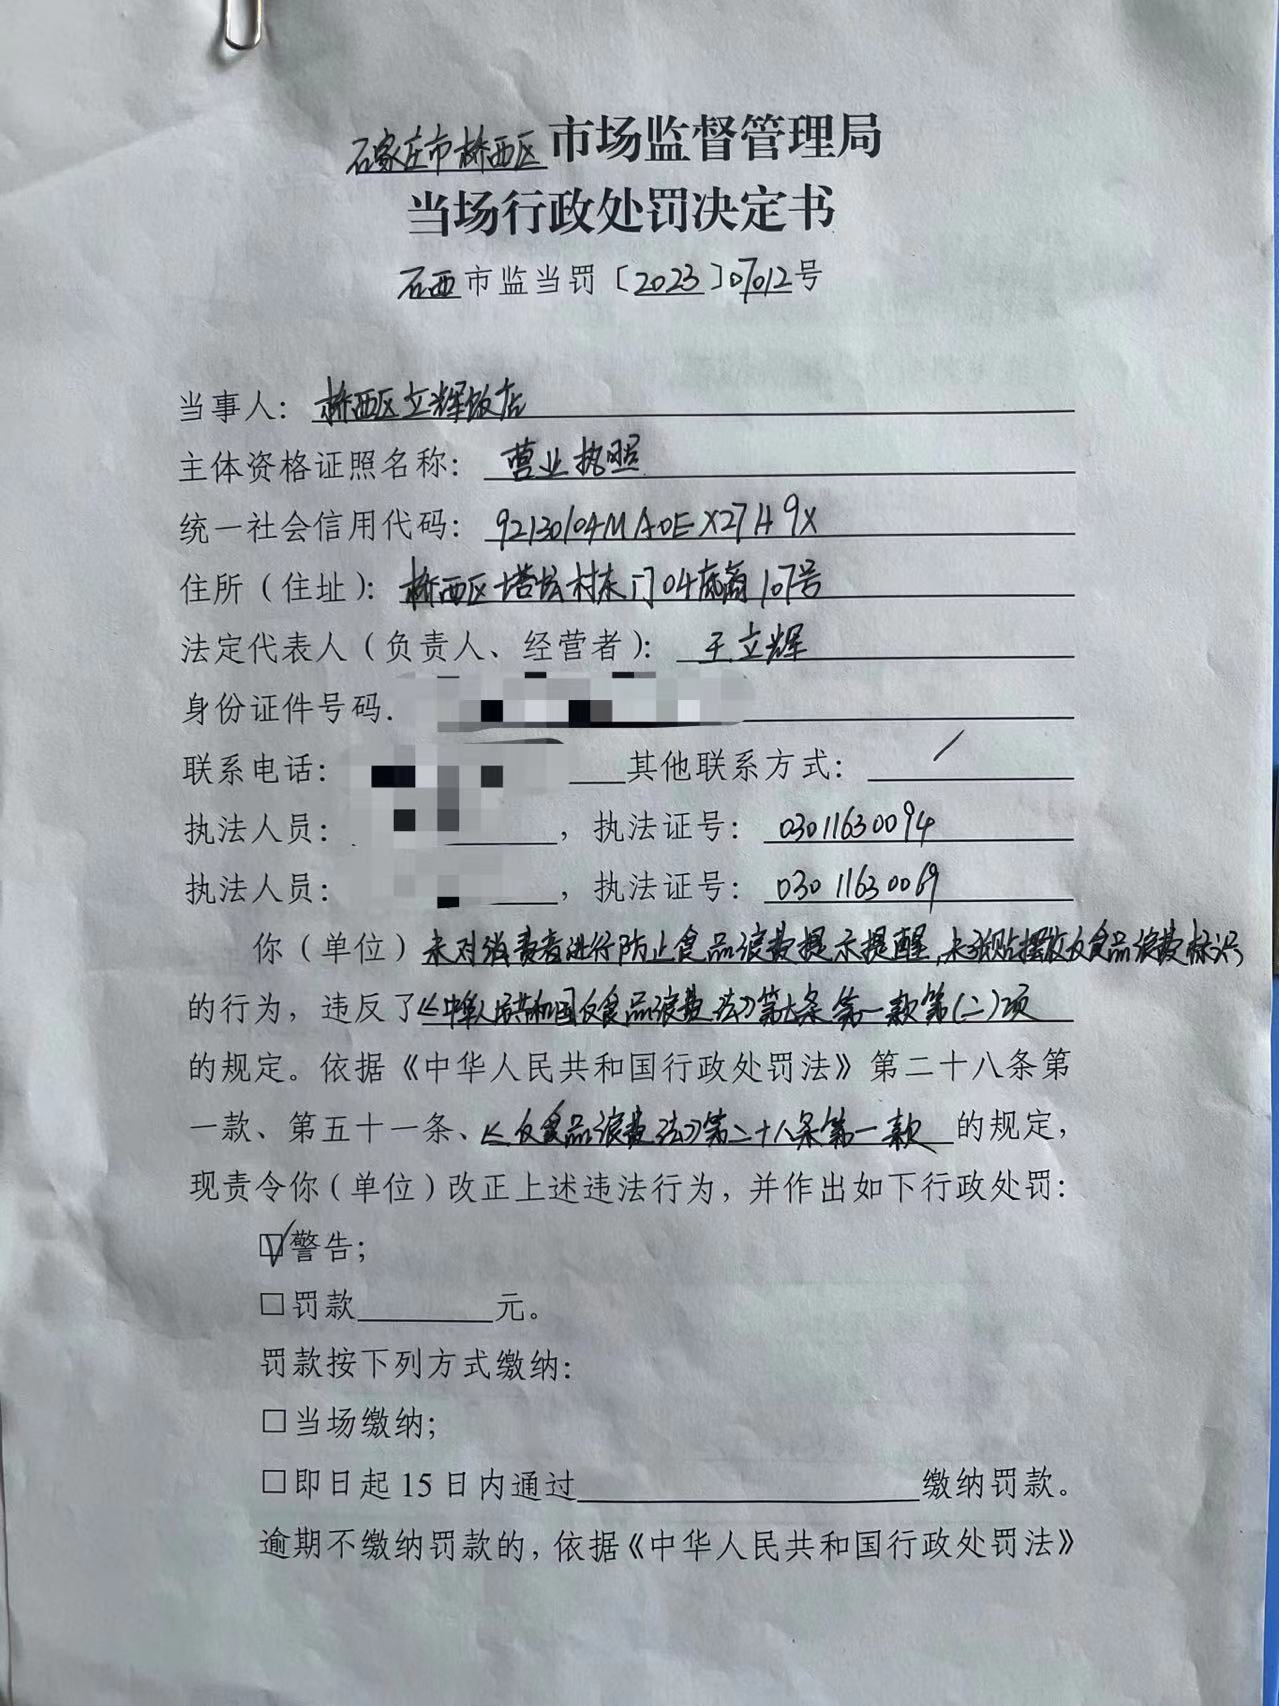 石家庄市桥西区市场监督管理局
当场行政处罚决定书
石西市监当罚〔2023〕07012号
当事人：桥西区立辉饭店
主体资格证照名称：营业执照
统一社会信用代码：92130104MA0EX27H9X
住所（住址）：桥西区塔坛村东门04底商107号
法定代表人（负责人、经营者）：王立辉
身份证件号码
联系电话： 其他联系方式：/
执法人员： ，执法证号：03011630094
执法人员： ，执法证号：03011630069
你（单位）未对消费者进行防止食品浪费提示提醒，未张贴摆放反食品浪费标识
的行为，违反了《中华人民共和国反食品浪费法》第七条第一款第（二）项
的规定。依据《中华人民共和国行政处罚法》第二十八条第
一款、第五十一条、《反食品浪费法》第二十八条第一款的规定，
现责令你（单位）改正上述违法行为，并作出如下行政处罚：
☑警告；
□罚款 元。
罚款按下列方式缴纳：
□当场缴纳；
□即日起15日内通过 缴纳罚款。
逾期不缴纳罚款的，依据《中华人民共和国行政处罚法》